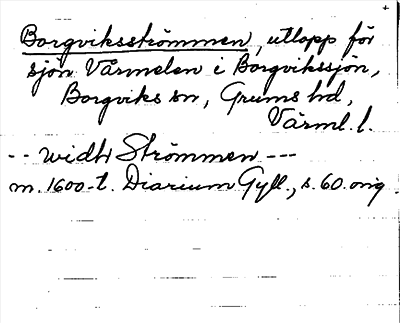 Borgviksströmmen, utlopp för
sjön Värmelen i Borgvikssjön,
Borgviks sn, Grums hd,
Värml. l.
- - widh Strömmen - - -
m. 1600-t. Diarium Gyll., s. 60. orig.